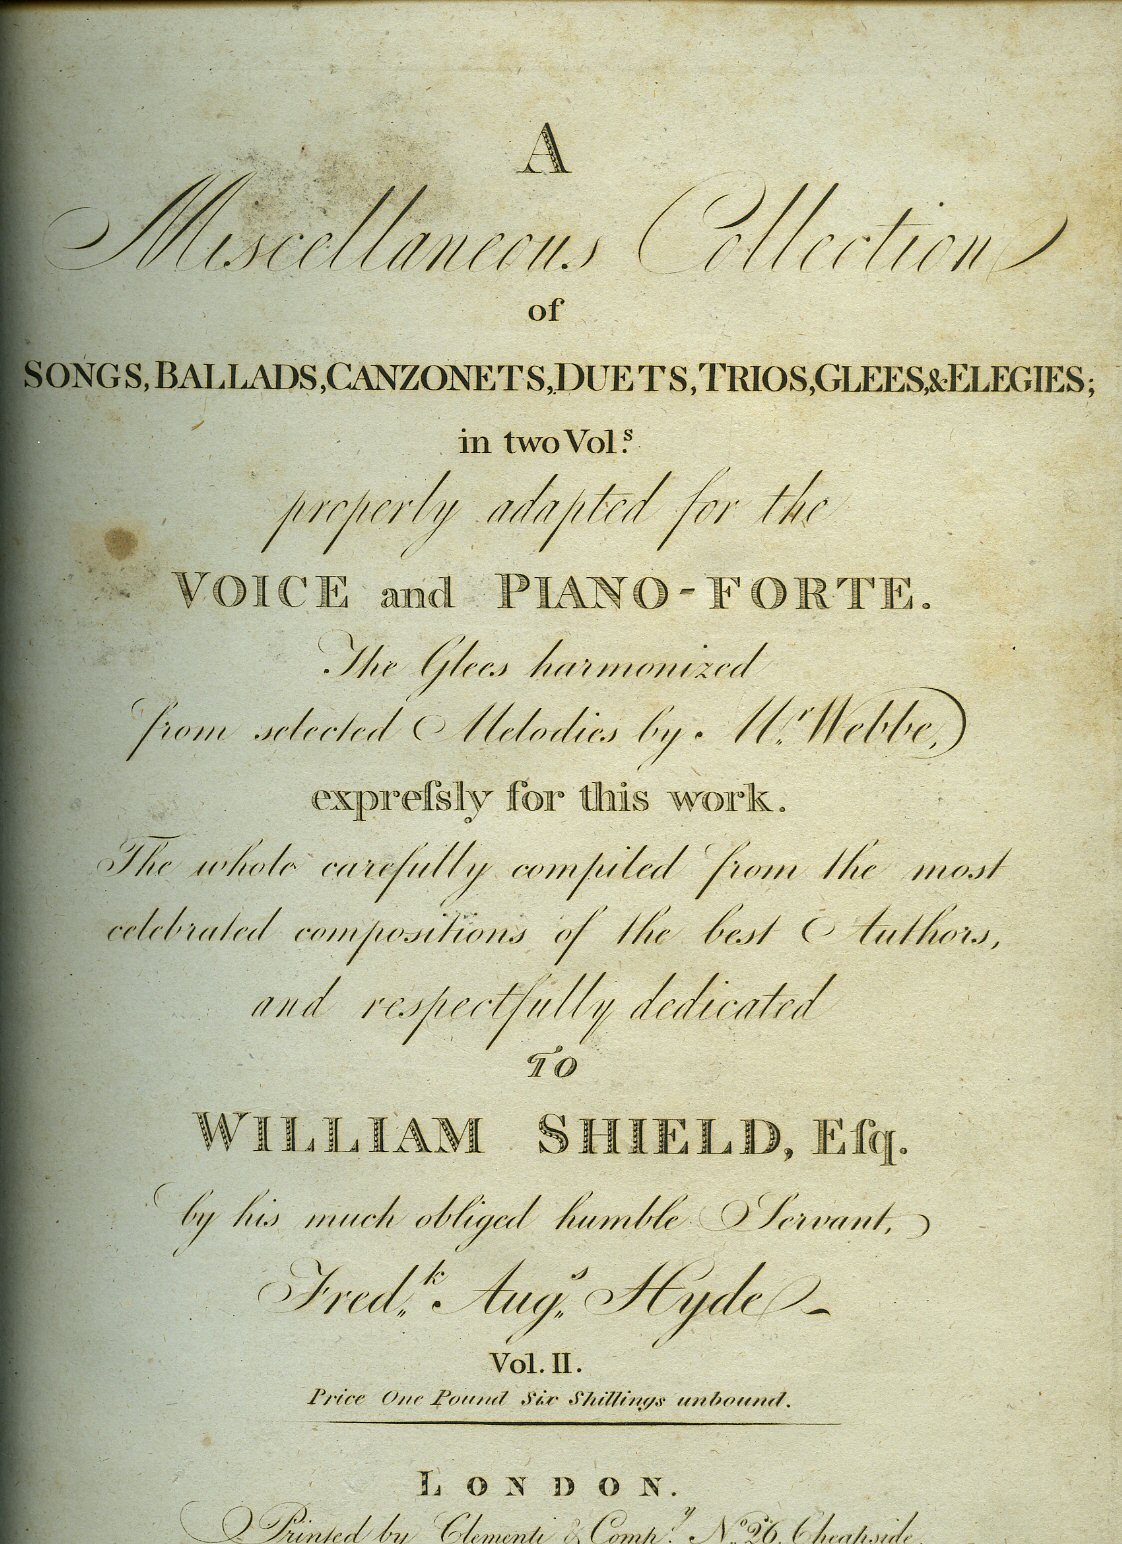 A
Miscellaneous Collection
of
SONGS, BALLADS, CANZONETS, DUETS, TRIOS, GLEES, & ELEGIES;
in two Vol.s
properly adapted for the
VOICE and PIANO-FORTE.
The Glees harmonized
from selected Melodies by Mr. Webbe,
expreſsly for this work.
The whole carefully compiled from the most
celebrated compositions of the best Authors,
and respectfully dedicated
TO
WILLIAM SHIELD, Eſq.
by his much obliged humble Servant,
Fred.k Aug.s Hyde
Vol. II.
Price One Pound Six Shillings unbound.
LONDON.
Printed by Clementi & Comp.y No. 26, Cheapside.